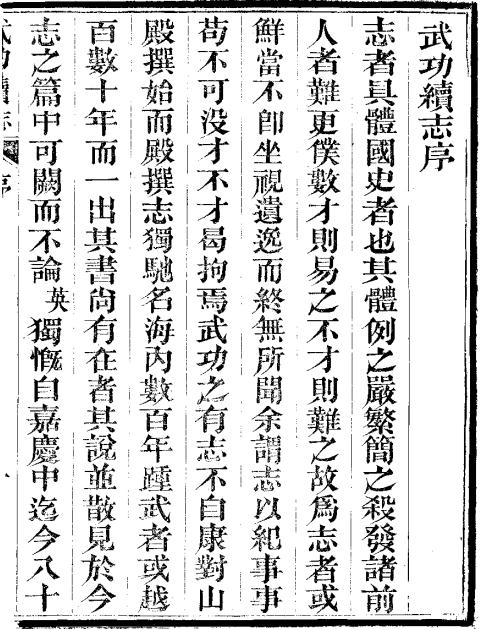 武功續志序
志者具體國史者也其體例之嚴繁簡之殺發諸前
人者難更僕數才則易之不才則難之故爲志者或
鮮當不卽坐視遺逸而終無所聞余謂志以紀事事
苟不可没才不才曷拘焉武功之有志不自康對山
殿撰始而殿撰志獨馳名海内數百年踵武者或越
百數十年而一出其書尙有在者其說並散見於今
志之篇中可闕而不論英獨慨自嘉慶中迄今八十
武功續志 序